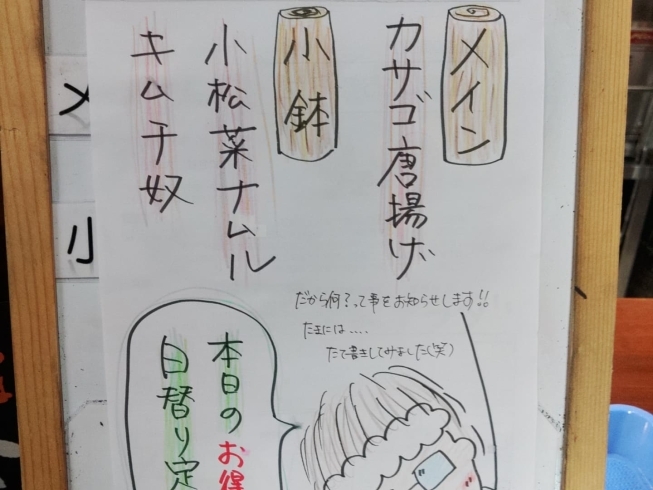 メイン
カサゴ唐揚げ
小鉢
小松菜ナムル
キムチ奴
だから何?って事をお知らせします!!
たまには....
たて書きしてみました(笑)
本日のお得
日替り定
メ
小